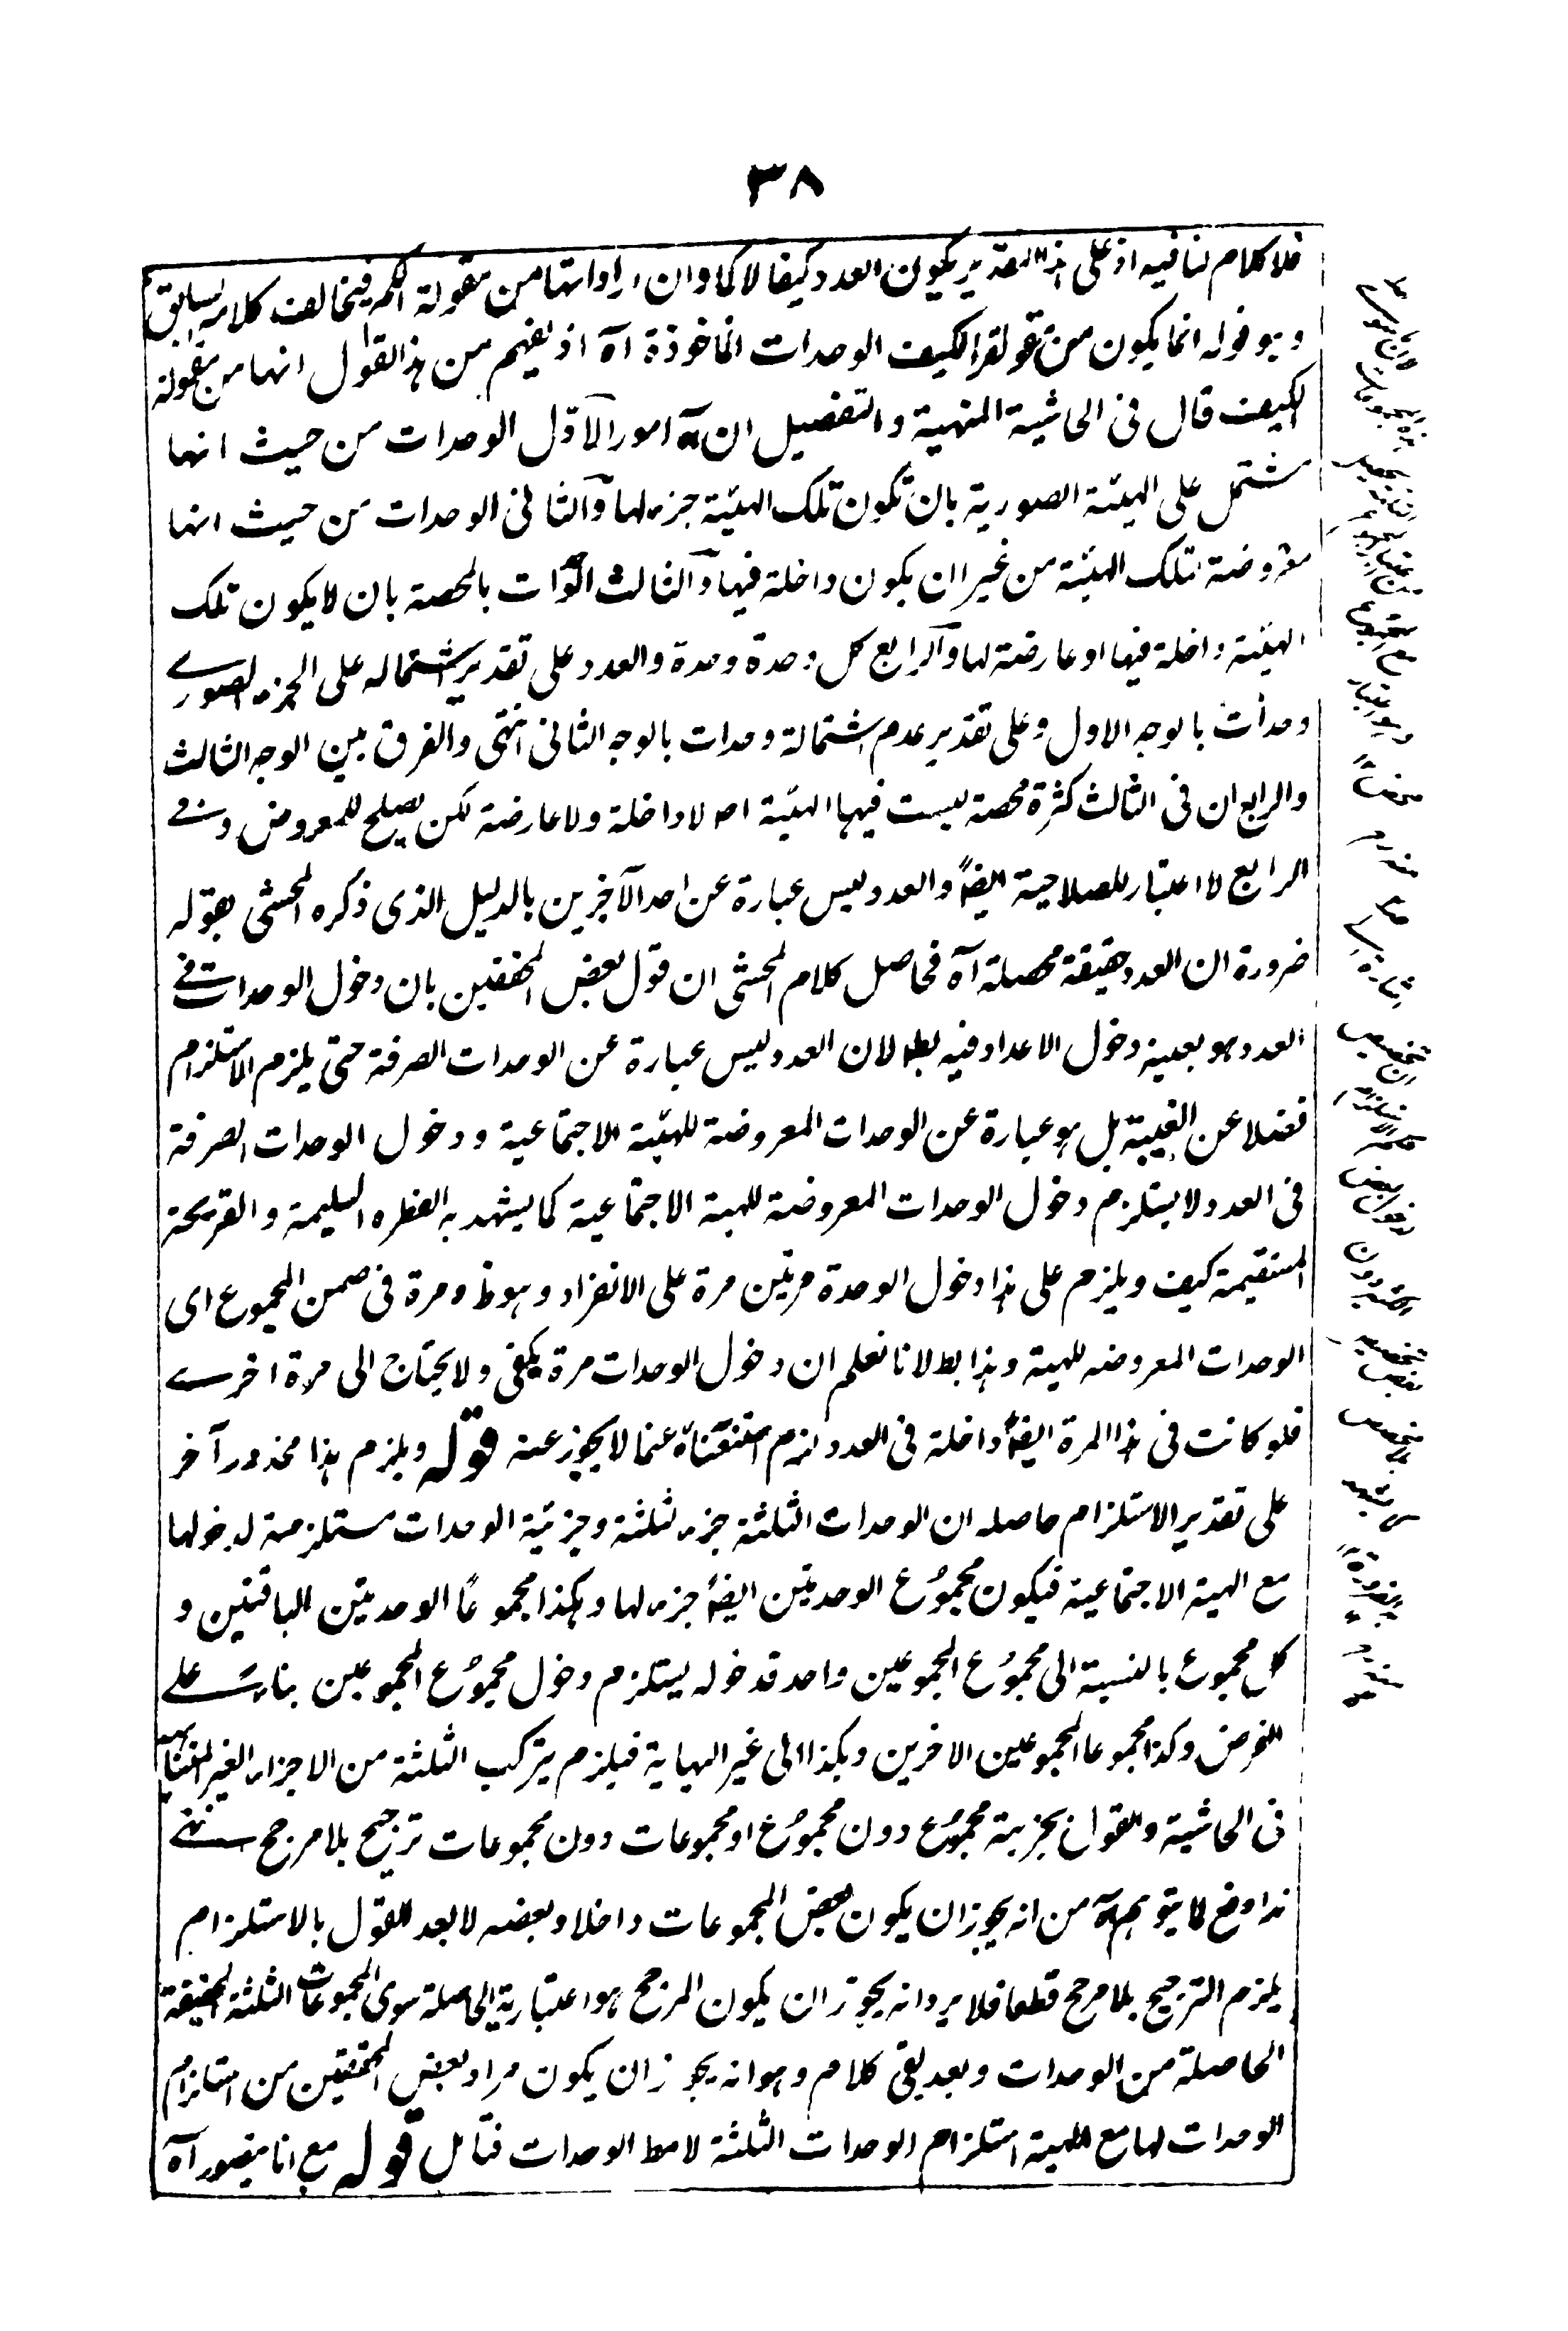 ٣٨
فلا كلام لنا فيه اذ على هذا التقدير يكون العدد كيفا لا كما وان اراد انها من مقولة الكم فيخالف كلامه السابق
وهو قوله انما يكون من مقولة الكيف الوحدات الماخوذة آه اذ يفهم من هذا القول انها من مقولة
الكيف قال فى الحاشية المنهية والتفصيل ان ههنا امور الاوّل الوحدات من حيث انها
مشتمل على الهيئة الصورية بان تكون تلك الهيئة جزء لها والثانى الوحدات من حيث انها
معروضة لتلك الهيئة من غير ان يكون داخلة فيها والثالث الوحدات بالمحضة بان لا يكون تلك
الهيئة داخلة فيها او عارضة لها والرابع كل وحدة وحدة والعدد على تقدير اشتماله على الجزء الصورى
وحدات بالوجه الاول وعلى تقدير عدم اشتمالة وحدات بالوجه الثانى انتهى والفرق بين الوجه الثالث
والرابع ان فى الثالث كثرة محضة ليست فيها الهيئة اصلا داخلة ولا عارضة لكن يصلح للمعروض وفى
الرابع لا اعتبار للصلاحية ايضاً والعدد ليس عبارة عن احد الآخرين بالدليل الذى ذكره المحشى بقوله
ضرورة ان العدد حقيقة محصلة آه فحاصل كلام المحشى ان قول بعض المحققين بان دخول الوحدات فى
العدد هو بعينه دخول الاعداد فيه بط لان العدد ليس عبارة عن الوحدات الصرفة حتى يلزم الاستلزام
فضلا عن العينية بل هو عبارة عن الوحدات المعروضة للهيئة الاجتماعية ودخول الوحدات الصرفة
فى العدد لا يستلزم دخول الوحدات المعروضة للهية الاجتماعية كما يشهد به الفطره السليمة والقريحة
المستقيمة كيف ويلزم على هذا دخول الوحدة مرتين مرة على الانفراد وهو ظ ومرة فى ضمن المجموع اى
الوحدات المعروضه للهية وهذا بط لانا نعلم ان دخول الوحدات مرة يكفى ولا يحتاج الى مرة اخرى
فلو كانت فى هذا المرة ايضاً داخلة فى العدد لزم استغناؤه عما لا يجوز عنه قوله ويلزم هذا محذور آخر
على تقدير الاستلزام حاصله ان الوحدات الثلثة جزء لثلثة وجزئية الوحدات مستلزمة لدخولها
مع الهية الاجتماعية فيكون مجموع الوحدتين ايضاً جزء لها وهكذا مجموعا الوحدتين الباقتين و
كل مجموع بالنسبة الى مجموع المجموعين واحد فدخوله يستلزم دخول مجموع المجموعين بناء على
الفرض وكذا مجموعا المجموعين الاخرين وهكذا الى غير النهاية فيلزم تركب الثلثة من الاجزاء الغير المتناهية
فى الحاشية والقول بجزئية مجموع دون مجموع او مجموعات دون مجموعات ترجيح بلا مرجح انتهى
هذا دفع لما يتوهم من انه يجوز ان يكون بعض المجموعات داخلا وبعضه لا بعد القول بالاستلزام
يلزم الترجيح بلا مرجح قطعا فلا يرد انه يجوز ان يكون المرجح هو اعتبارية الحاصلة سوى المجموعات الثلثة الحقيقة
الحاصلة من الوحدات وبعد بقى كلام وهو انه يجوز ان يكون مراد بعض المحققين من استلزام
الوحدات لها مع الهية استلزام الوحدات الثلثة لا مط الوحدات فتامل قوله مع انا نتصور آه